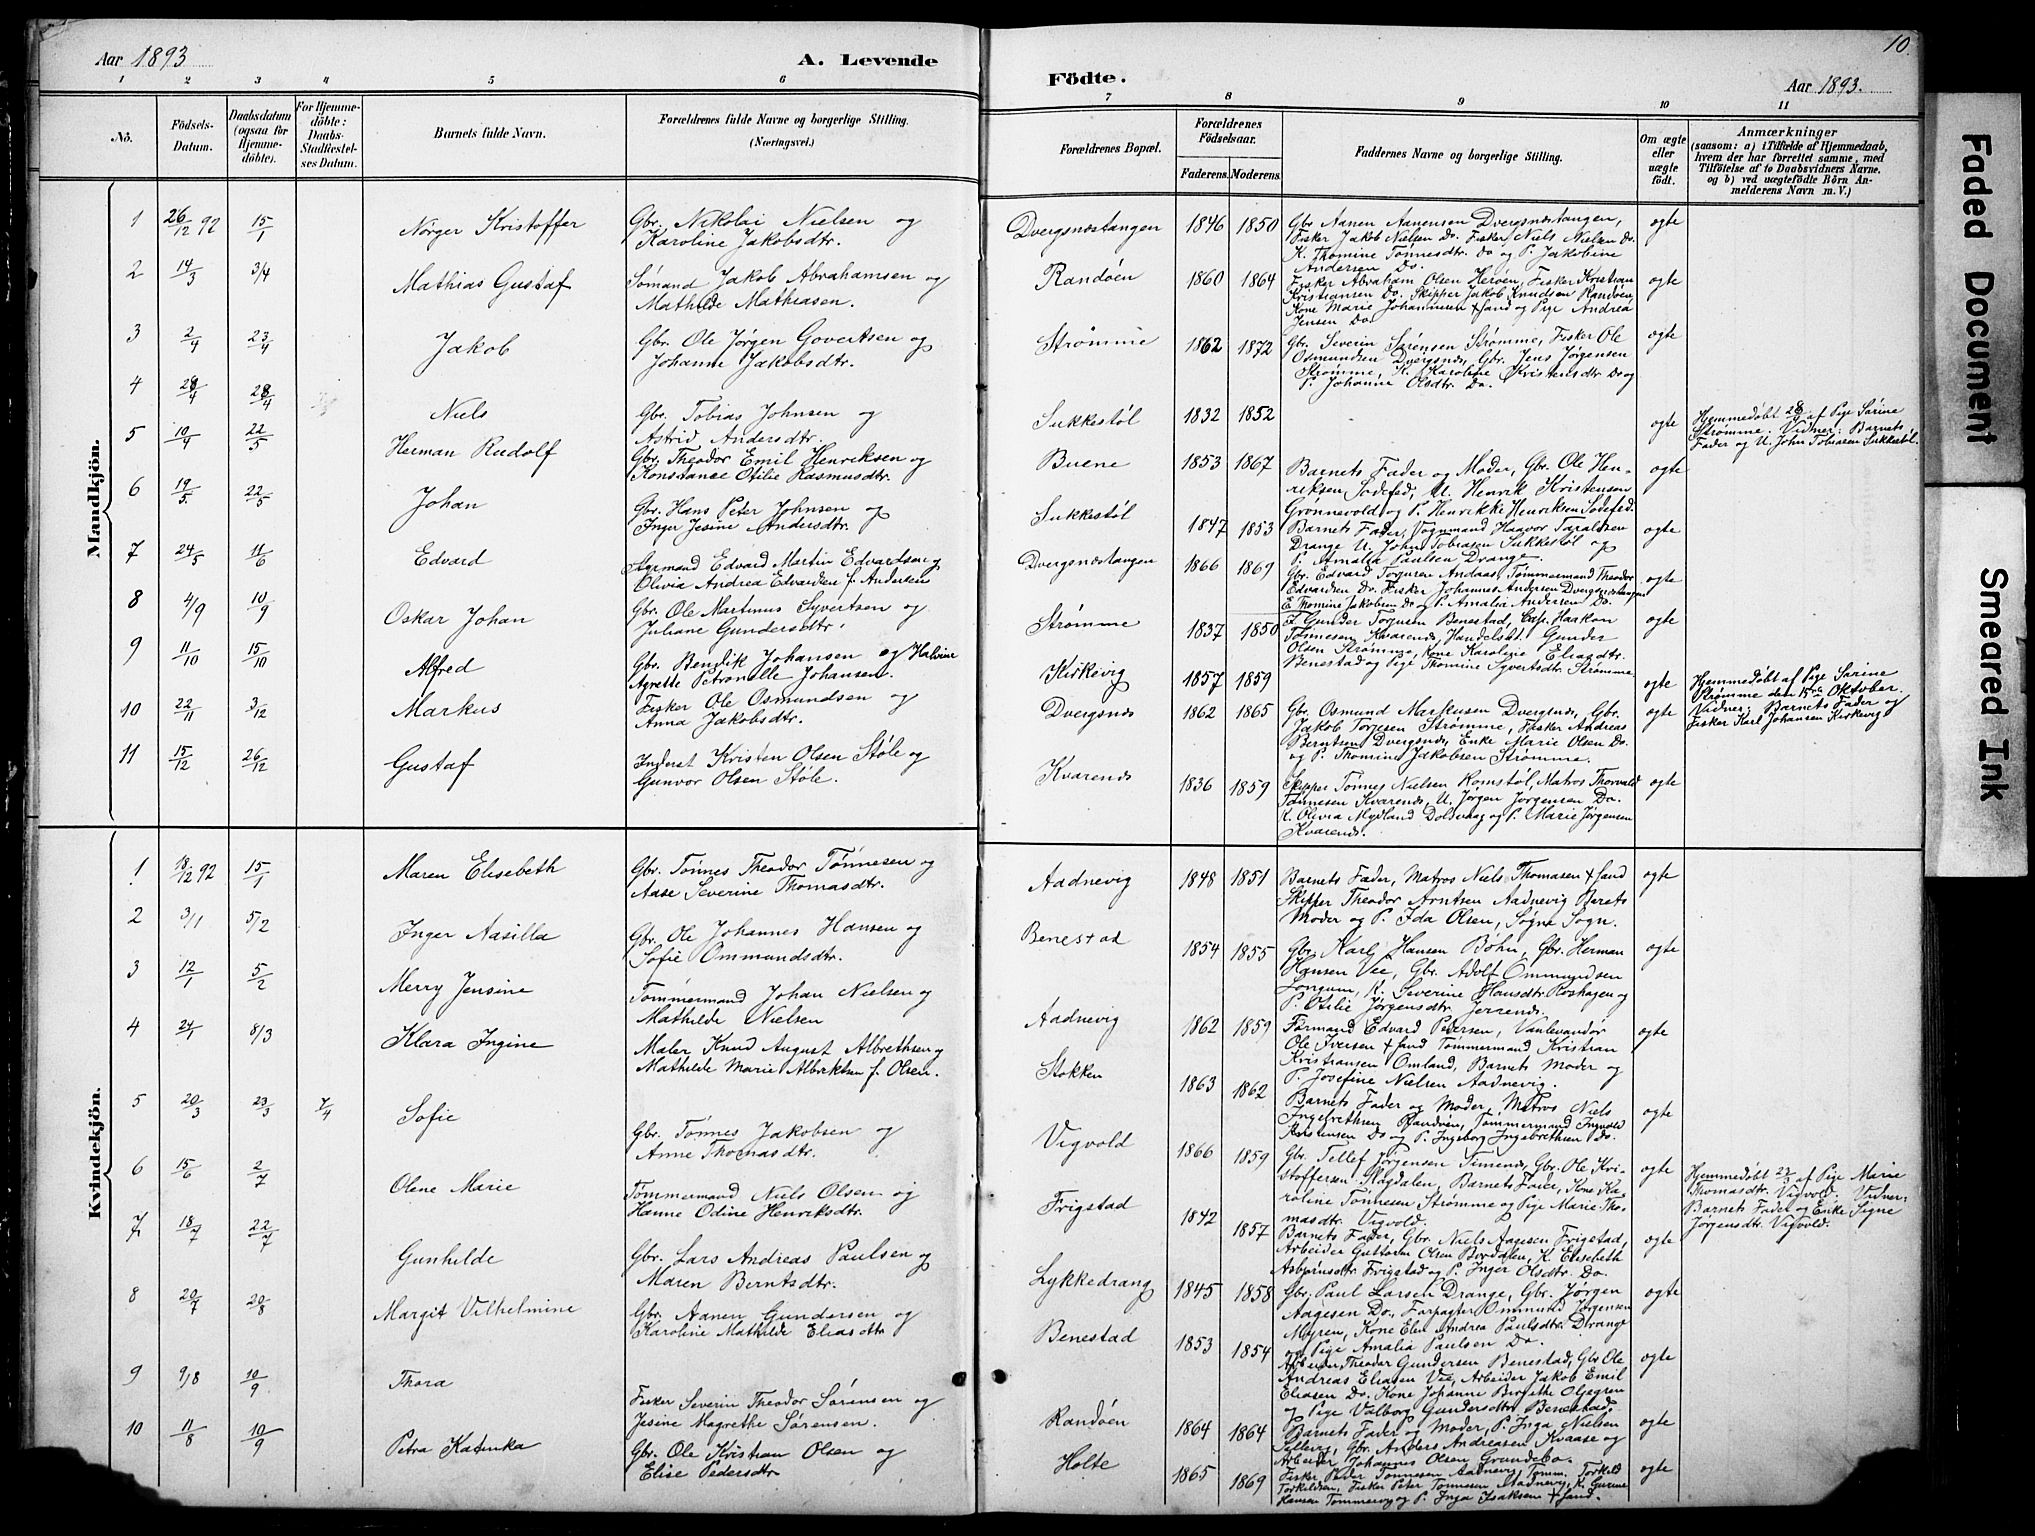 Aar 1893
A. Levende
1 2 3 4 5 6
No. Födsels-Datum. Daabsdatum (ogsaa for Hjemmedöbte). For Hjemmedöbte: Daabs-Stadfæstelses Datum. Barnets fulde Navn. Forældrenes fulde Navne og borgerlige Stilling. (Næringsvei.)
Mandkjön.
1 26/12 92 15/1 Nörger Kristoffer Gbr. Nikolai Nielsen og
Karoline Jakobsdtr.
2 14/3 3/4 Mathias Gustaf Sømand Jakob Abrahamsen og
Mathilde Mathiasen.
3 2/4 23/4 Jakob Gbr. Ole Jørgen Govertsen og
Johanne Jakobsdtr.
4 28/4 28/4 Niels Gbr. Tobias Johnsen og
Astrid Andersdtr.
5 10/4 22/5 Herman Rudolf Gbr. Theodor Emil Henriksen og
Konstance Otilie Rasmusdtr.
6 19/5 22/5 Johan Gbr. Hans Peter Johnsen og
Inger Jesine Andersdtr.
7 24/5 11/6 Edvard Edvard Martin Edvardsen og
Olivia Andrea Edvardsen f. Andersen
8 4/9 10/9 Oskar Johan Gbr. Ole Martinus Syvertsen og
Juliane Gundersdtr.
9 11/10 15/10 Alfred Gbr. Bendik Johansen og Halvine
Agrette Petronelle Johansen.
10 22/11 3/12 Markus Fisker Ole Osmundsen og
Anna Jakobsdtr.
11 15/12 26/12 Gustaf Inderst Kristen Olsen Støle og
Gunvor Olsen Støle.
Kvindekjön.
1 18/12 92 15/1 Maren Elisebeth Gbr. Tønnes Theodor Tønnesen og
Aase Severine Thomasdtr.
2 3/1 5/2 Inger Aasilla Gbr. Ole Johannes Hansen og
Sofie Ommundsdtr.
3 12/1 5/2 Merry Jensine Tømmermand Johan Nielsen og
Mathilde Nielsen
4 24/1 8/3 Klara Ingine Maler Knud August Albrethsen og
Mathilde Marie Albrektsen f. Olsen.
5 20/3 23/3 7/4 Sofie Gbr. Tønnes Jakobsen og
Anne Thomasdtr.
6 15/6 2/7 Olene Marie Tømmermand Niels Olsen og
Hanne Odine Henriksdtr.
7 18/7 22/7 Gunhilde Gbr. Lars Andreas Paulsen og
Maren Berntsdtr.
8 20/7 20/8 Margit Vilhelmine Gbr. Aanen Gundersen og
Karoline Mathilde Eliasdtr
9 9/8 10/9 Thora Fisker Severin Theodor Sørensen og
Jesine Magrethe Sørensen.
10 11/8 10/9 Petra Katinka Gbr. Ole Kristian Olsen og
Elise Pedersdtr
10.
Födte.
Aar 1893.
7 8 9 10 11
Forældrenes Bopæl. Forældrenes Födselsaar. Faderens. Moderens. Faddernes Navne og borgerlige Stilling. Om ægte eller uægte födt. Anmærkninger
(saasom: a) i Tilfælde af Hjemmedaab, hvem der har forrettet samme, med Tilföielse af to Daabsvidners Navne, og b) ved uægtefödte Börn Anmelderens Navn m. V.)
Dvergsnæstangen 1846 1850 Gbr Aanen Aanensen Dvergsnæstangen, ægte
Fisker Jakob Nielsen Do. Fisker Niels Nielsen Do.
K. Thomine Tønnesdtr. Do og P. Jakobine
Andersen Do.
Randøen 1860 1864 Fisker Abraham Olsen Herøen, Fisker Kristian ægte
Kristiansen Do. Skipper Jakob Knudsen Randøen,
Kone Marie Johannesen + sand og Pige Andrea
Jensen Do.
Strømme 1862 1872 Gbr. Severin Sørensen Strømme, Fisker Ole ægte
Osmundsen Dvergsnæs, Gbr. Jens Jørgensen
Strømme, K. Karoline Kristensdtr Do og
P. Johanne Olsdtr. Do.
Sukkestøl 1832 1852 ægte Hjemmedøbt 28/4 af Pige Sørine
Strømme. Vidner: Barnets
Fader og U. John Tobiasen Sukkestøl.
Buene 1853 1867 Barnets Fader og Moder, Gbr. Ole Hen- ægte
riksen Sodefed, U. Henrik Kristensen
Grønnevold og P. Henrikke Henriksen Sodefed.
Sukkestøl 1847 1853 Barnets Fader, Vognmand Haavor Taraldsen ægte
Drange U. John Tobiasen Sukkestøl og
P. Amalia Paulsen Drange.
Dvergsnæstangen 1866 1869 Gbr. Edvard Torjusen Andaas, Tømmermand Theodor ægte
Edvardsen Do. Fisker Johannes Andersen Dvergsnæstangen
E. Thomine Jakobsen Do og P. Amalia Andersen Do.
Strømme 1837 1850 F. Gunder Torjusen Benestad, Cap. Haakon ægte
Tønnesen Kvarenæs, Handelsbt. Gunder
Olsen Strømme, Kone Karoline Eliasdtr.
Benestad og Pige Thomine Syvertsdtr. Strømme.
Kirkevig 1857 1859 ægte Hjemmedøbt af Pige Sørine
Strømme den 15de Oktober.
Vidner: Barnets Fader og
Fisker Karl Johansen Kirkevig
Dvergsnæs 1862 1865 Gbr. Osmund Markusen Dvergsnæs, Gbr. ægte
Jakob Torjesen Strømme, Fisker Andreas
Berntsen Dvergsnæs, Enke Marie Olsen Do.
og P. Thomine Jakobsen Strømme.
Kvarenæs 1836 1859 Skipper Tønnes Nielsen Romstøl, Matros Thorvald ægte
Tønnesen Kvarenæs, U. Jørgen Jørgensen Do.
K. Olivia Mydland Dolsvaag og P. Marie Jørgensen
Kvarenæs.
Aadnevig 1848 1851 Barnets Fader, Matros Niels Thomasen + sand ægte
Skipper Theodor Arntsen Aadnevig Barnets
Moder og P. Ida Olsen, Søgne Sogn.
Benestad 1854 1855 Gbr. Karl Hansen Bøhn, Gbr. Herman ægte
Hansen Vee, Gbr. Adolf Ommundsen
Longum, K. Severine Hansdtr. Roshagen og
P. Otilie Jørgensdtr. Jerrenæs.
Aadnevig 1862 1859 Formand Edvard Pedersen, ægte
Ole Iversen + sand Tømmermand Kristian
Kristiansen Omland, Barnets Moder og
P. Josefine Nielsen Aadnevig.
Stokken 1863 1862 Barnets Fader og Moder, Matros Niels ægte
Ingebrethsen Randøen, Tømmermand Ingvold
Kristensen Do og P. Ingeborg Ingebrethsen Do.
Vigvold 1866 1859 Gbr. Tellef Jørgensen Timenæs, Gbr. Ole Kri- ægte
stoffersen Magdalen, Barnets Fader, Kone Ka-
roline Tønnesen Strømme og Pige Marie Tho-
masdtr. Vigvold.
Hjemmedøbt 22/3 af Pige Marie
Thomasdtr. Vigvold. Vidner:
Barnets Fader og Enke Signe
Jørgensdtr. Vigvold.
Frigstad 1842 1857 Barnets Fader, Gbr. Niels Aagesen Frigstad, ægte
Arbeider Guttorm Olsen Bordalen, K. Elisebeth
Asbjørnsdtr. Frigstad og P. Inger Olsdtr. Do.
Lykkedrang 1845 1858 Gbr. Paul Larsen Drange, Gbr. Jørgen ægte
Aagesen Do., Forpagter Ommund Jørgensen
Myren, Kone Elen Andrea Paulsdtr. Drange
og Pige Amalia Paulsen Do.
Benestad 1853 1854 Arbeider Theodor Gundersen Benestad, Gbr. Ole ægte
Andreas Eliasen Vee, Arbeider Jakob Emil
Eliasen Do. Kone Johanne Birgithe Oljegren
og Pige Valborg Gundersdtr Benestad.
Randøen 1864 1864 Barnets Fader og Moder, P. Inga Nielsen ægte
Gbr. Anders Andreasen Kvaase og
Arbeider Johannes Olsen Grundebo.
Holte 1865 1869 Fisker Peder Tønnesen Aadnevig, Tømm. Torkild ægte
Torkildsen, Fisker Peter Tønnesen Aadnevig, K. Gurine
Hansen Tømmervig og P. Inga Isaksen + sand.
Faded Document
Smeared Ink